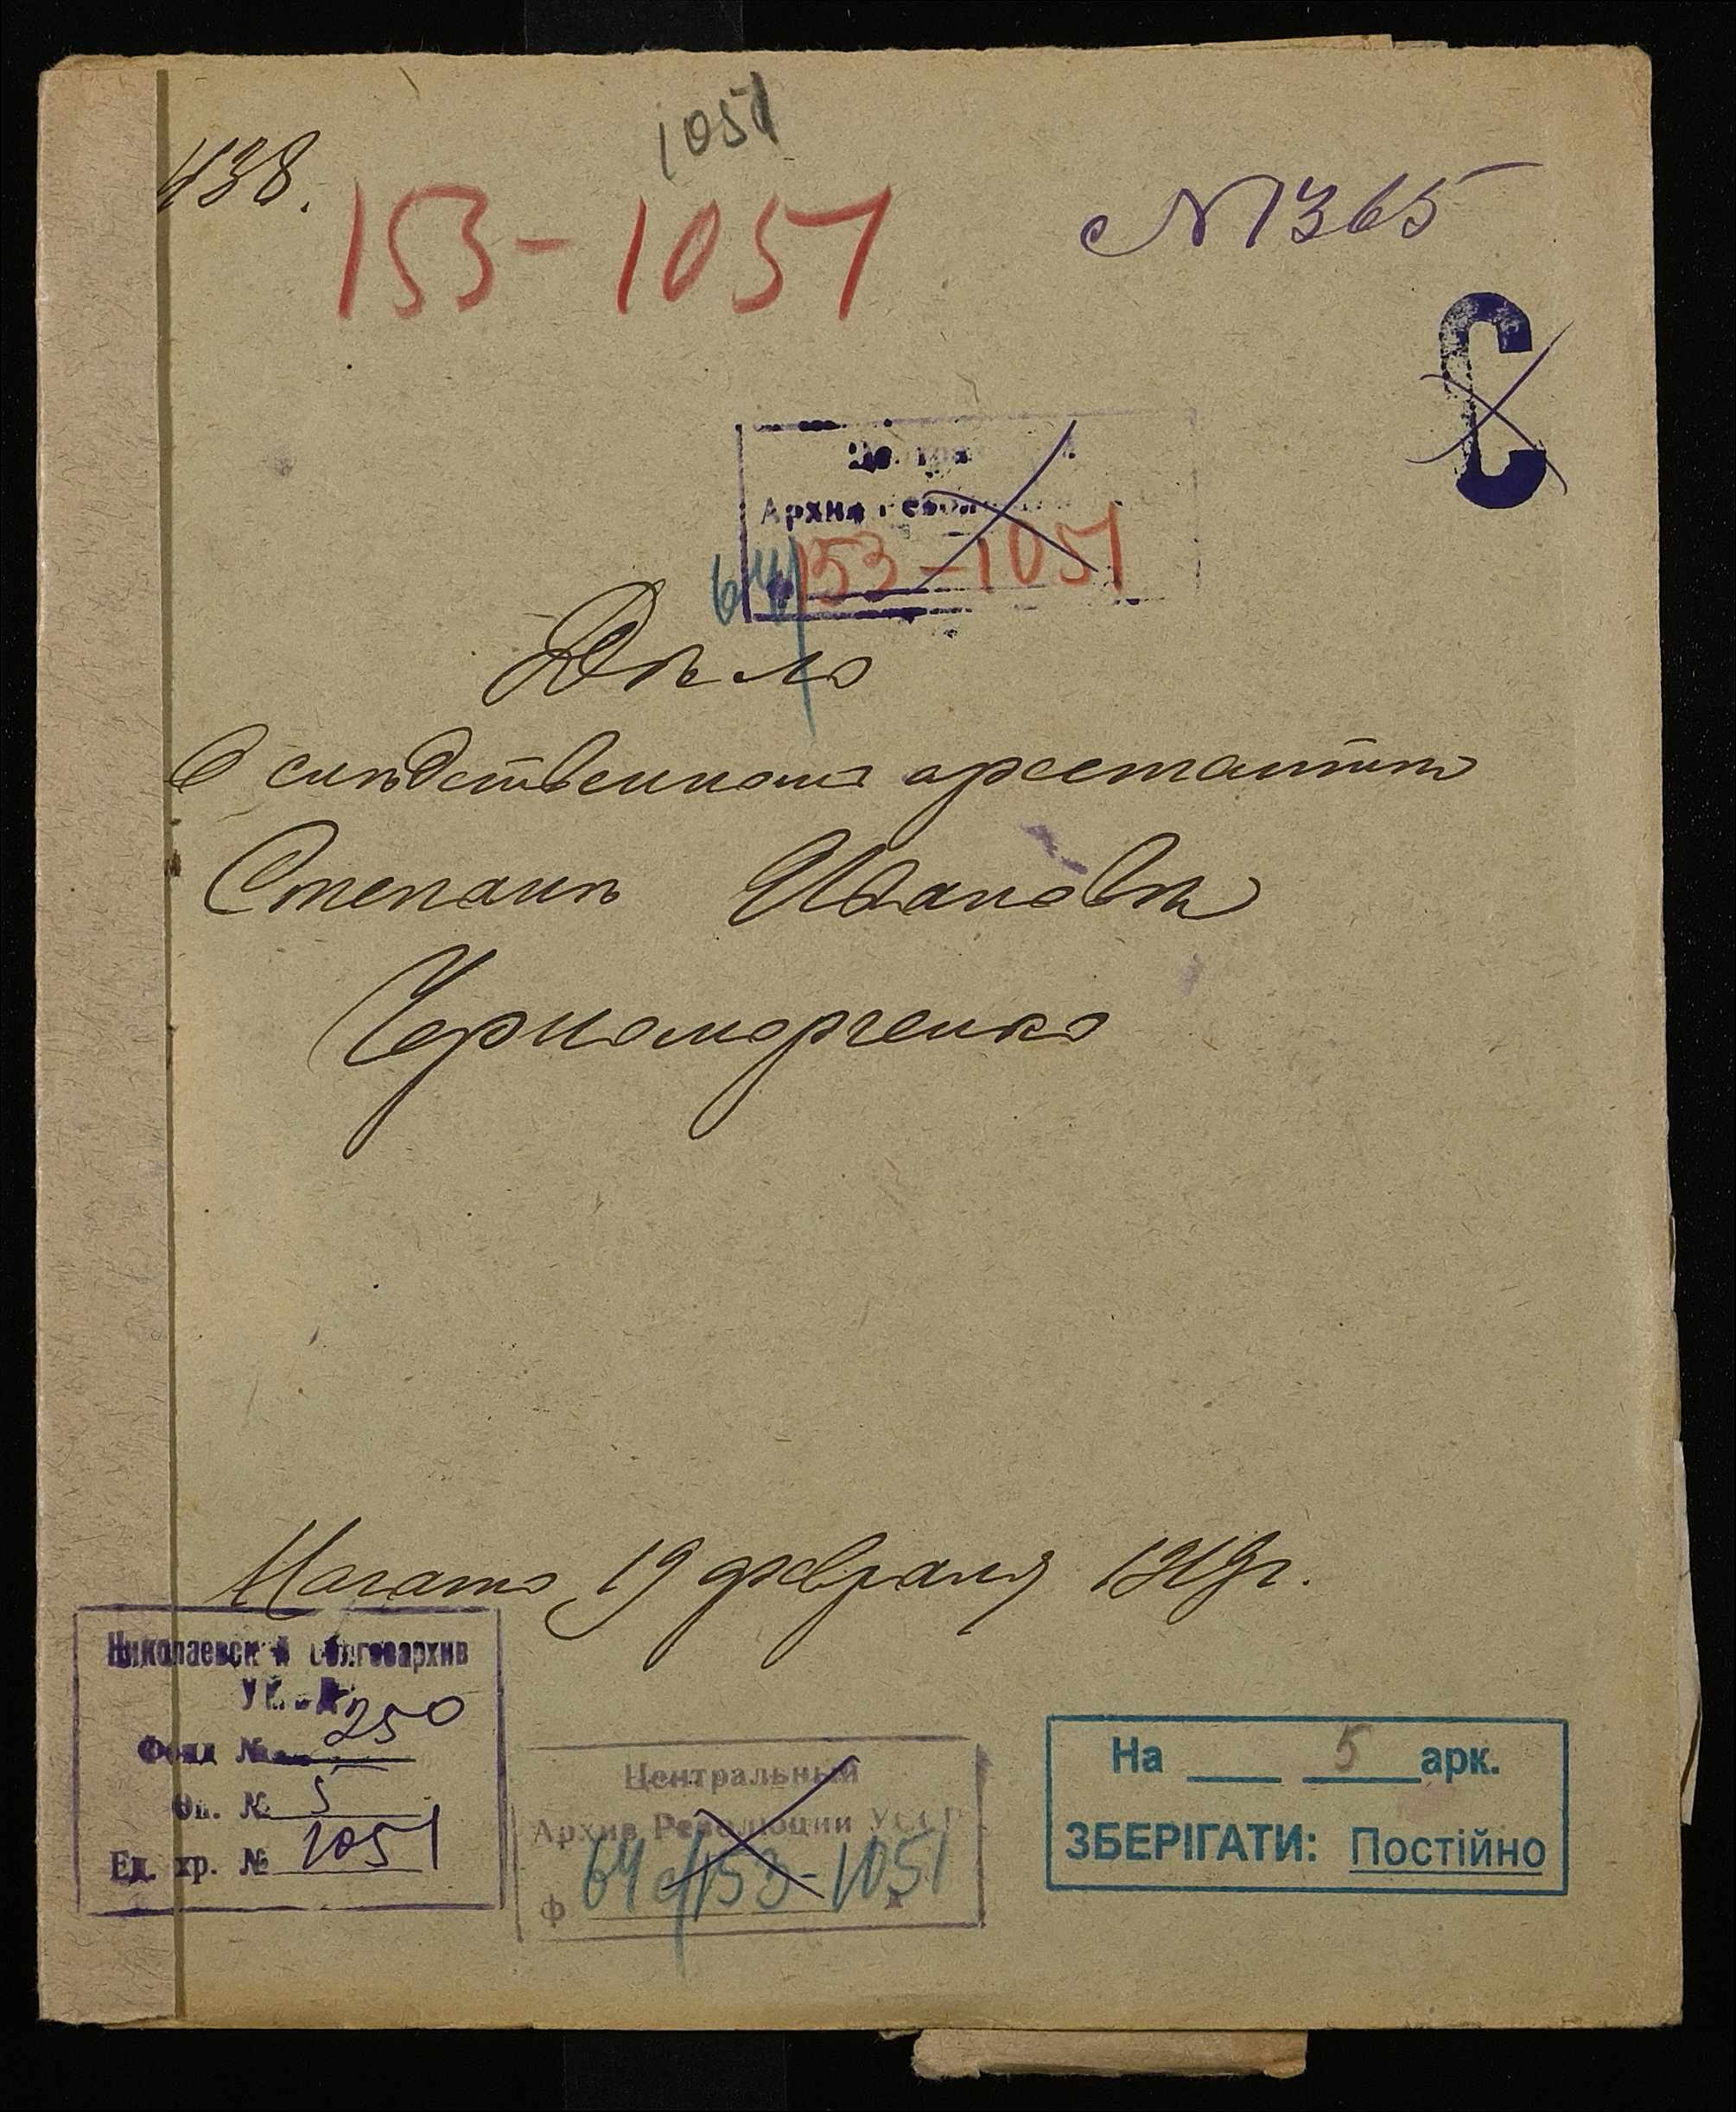 1051
438.
153-1051
№1365
С
Архив
153-1051
Дѣло
О слѣдственномъ арестантѣ
Степанѣ Ивановѣ
Черноморченко
Начато 19 февраля
Николаевский Облгосархив
Фонд № 250
Оп. № 5
Ед. хр. № 1051
Центральный
Архив Революции УССР
Ф 64 153-1051
На ____ 5 арк.
ЗБЕРІГАТИ: Постійно